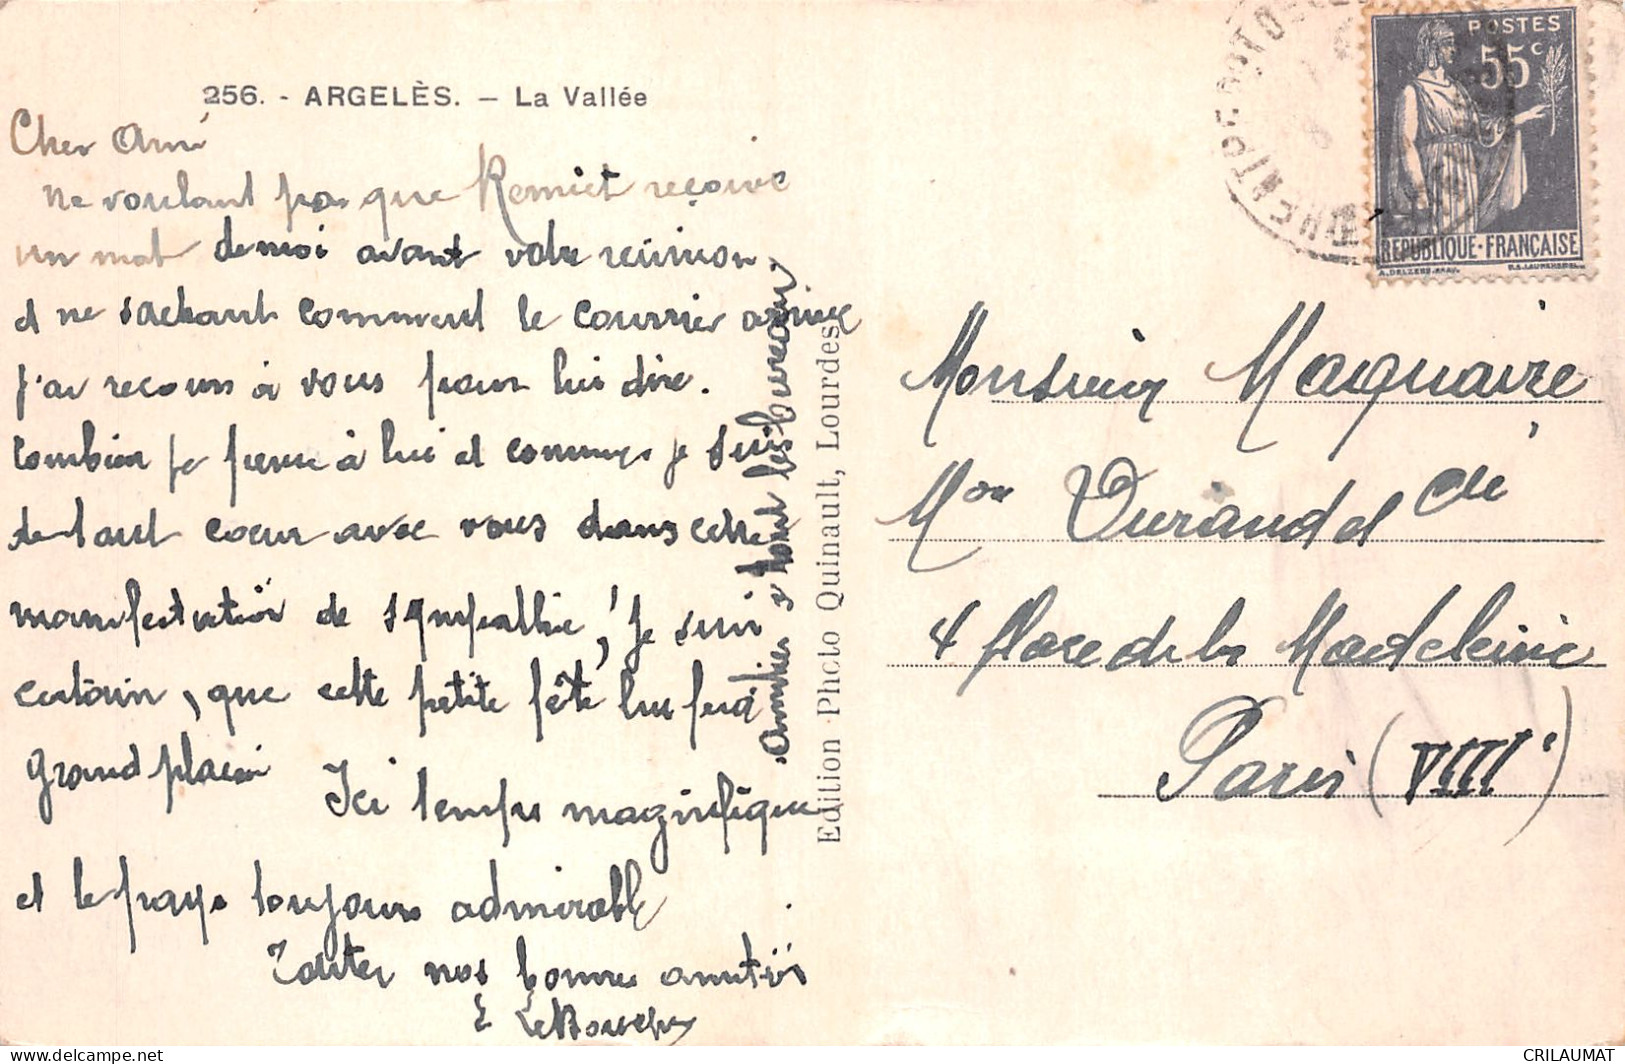 256. - ARGELÈS. – La Vallée
Cher Ami
ne voulant pas que Remiet reçoive
un mot de moi avant votre réunion
et ne sachant comment le courrier arrive
j'ai recours à vous pour lui dire.
combien je pense à lui et comme je suis
de tout coeur avec vous dans cette
manifestation de sympathie, je suis
certain, que cette petite fête lui fera
grand plaisir Ici temps magnifique
et le pays toujours admirable
Toutes nos bonnes amitiés
amitiés à tout les bureaux
Edition Photo Quinault, Lourdes
POSTES
55c
REPUBLIQUE·FRANÇAISE
Monsieur Maquaire
Mon Durand et Cie
4 place de la Madeleine
Paris (VIIIe)
CRILAUMAT